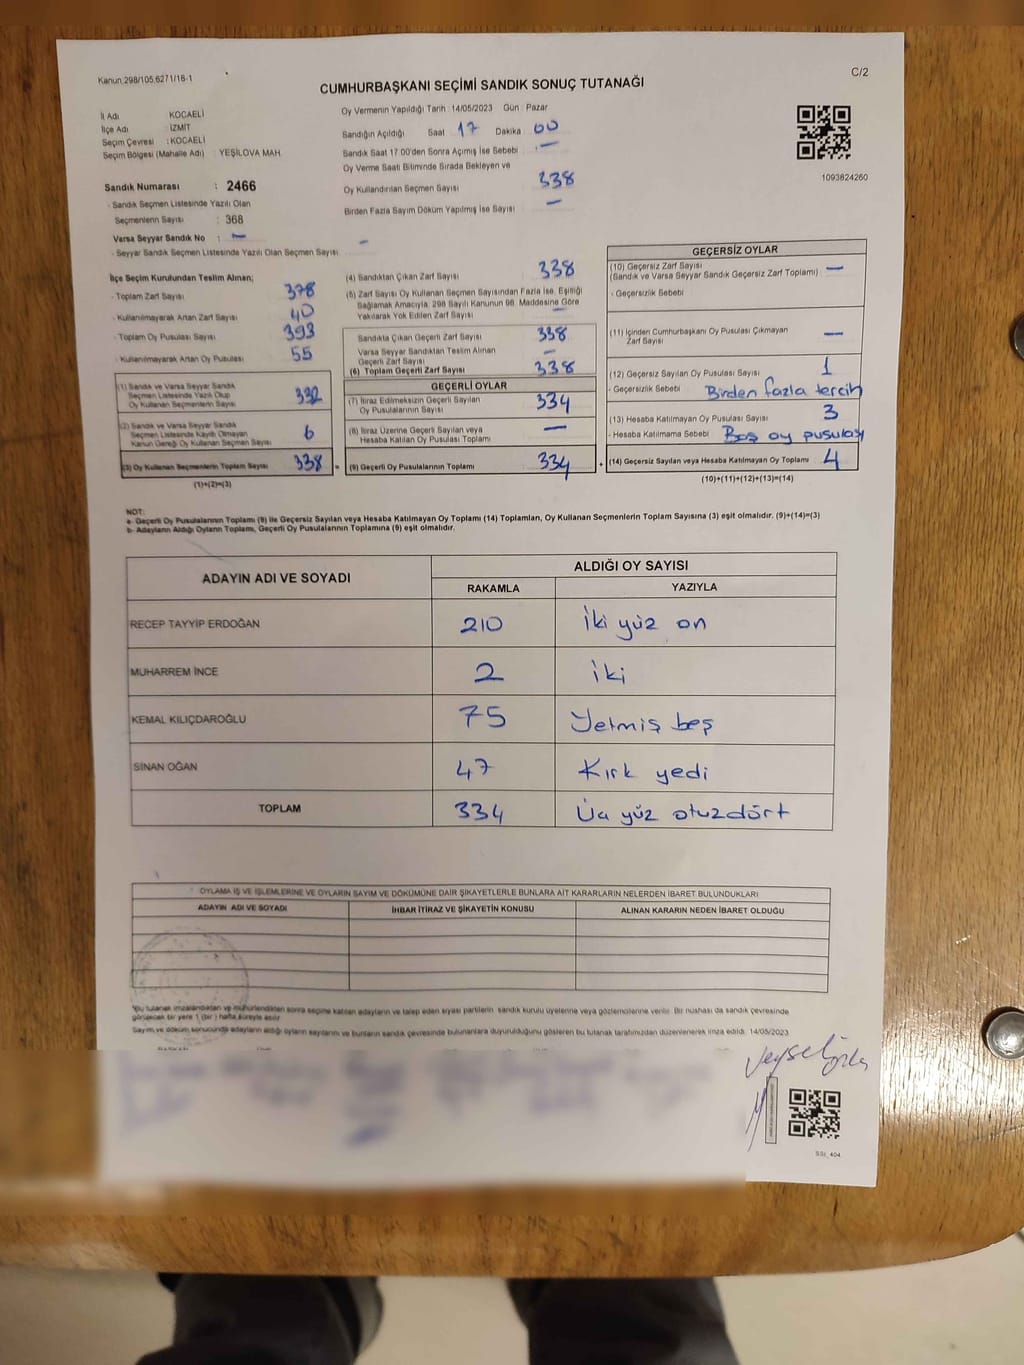 Kanun.298/105,6271/18-1
C/2
CUMHURBAŞKANI SEÇİMİ SANDIK SONUÇ TUTANAĞI
İl Adı KOCAELİ
İlçe Adı : İZMİT
Seçim Çevresi : KOCAELİ
Seçim Bölgesi (Mahalle Adı) : YEŞİLOVA MAH.
Sandık Numarası : 2466
- Sandık Seçmen Listesinde Yazılı Olan
Seçmenlerin Sayısı : 368
Varsa Seyyar Sandık No : —
- Seyyar Sandık Seçmen Listesinde Yazılı Olan Seçmen Sayısı : —
Oy Vermenin Yapıldığı Tarih : 14/05/2023 Gün : Pazar
Sandığın Açıldığı Saat 17 Dakika 00
Sandık Saat 17.00'den Sonra Açımış İse Sebebi : —
Oy Verme Saati Bitiminde Sırada Bekleyen ve
Oy Kullandırılan Seçmen Sayısı 338
Birden Fazla Sayım Döküm Yapılmış İse Sayısı —
1093824260
İlçe Seçim Kurulundan Teslim Alınan;
- Toplam Zarf Sayısı 378
- Kullanılmayarak Artan Zarf Sayısı 40
- Toplam Oy Pusulası Sayısı 393
- Kullanılmayarak Artan Oy Pusulası 55
(1) Sandık ve Varsa Seyyar Sandık
Seçmen Listesinde Yazılı Olup
Oy Kullanan Seçmenlerin Sayısı 332
(2) Sandık ve Varsa Seyyar Sandık
Seçmen Listesinde Kayıtlı Olmayan
Kanun Gereği Oy Kullanan Seçmen Sayısı 6
(3) Oy Kullanan Seçmenlerin Toplam Sayısı 338
(1)+(2)=(3)
(4) Sandıktan Çıkan Zarf Sayısı 338
(5) Zarf Sayısı Oy Kullanan Seçmen Sayısından Fazla İse, Eşitliği
Sağlamak Amacıyla, 298 Sayılı Kanunun 98. Maddesine Göre
Yakılarak Yok Edilen Zarf Sayısı —
Sandıkta Çıkan Geçerli Zarf Sayısı 338
Varsa Seyyar Sandıktan Teslim Alınan
Geçerli Zarf Sayısı —
(6) Toplam Geçerli Zarf Sayısı 338
GEÇERLİ OYLAR
(7) İtiraz Edilmeksizin Geçerli Sayılan
Oy Pusulalarının Sayısı 334
(8) İtiraz Üzerine Geçerli Sayılan veya
Hesaba Katılan Oy Pusulası Toplamı —
= (9) Geçerli Oy Pusulalarının Toplamı 334
GEÇERSİZ OYLAR
(10) Geçersiz Zarf Sayısı
(Sandık ve Varsa Seyyar Sandık Geçersiz Zarf Toplamı) —
- Geçersizlik Sebebi
(11) İçinden Cumhurbaşkanı Oy Pusulası Çıkmayan
Zarf Sayısı —
(12) Geçersiz Sayılan Oy Pusulası Sayısı 1
- Geçersizlik Sebebi Birden fazla tercih
(13) Hesaba Katılmayan Oy Pusulası Sayısı 3
- Hesaba Katılmama Sebebi Boş oy pusulası
+ (14) Geçersiz Sayılan veya Hesaba Katılmayan Oy Toplamı 4
(10)+(11)+(12)+(13)=(14)
NOT:
a- Geçerli Oy Pusulalarının Toplamı (9) ile Geçersiz Sayılan veya Hesaba Katılmayan Oy Toplamı (14) Toplamları, Oy Kullanan Seçmenlerin Toplam Sayısına (3) eşit olmalıdır. (9)+(14)=(3)
b- Adayların Aldığı Oyların Toplamı, Geçerli Oy Pusulalarının Toplamına (9) eşit olmalıdır.
ADAYIN ADI VE SOYADI ALDIĞI OY SAYISI
RAKAMLA YAZIYLA
RECEP TAYYİP ERDOĞAN 210 İki yüz on
MUHARREM İNCE 2 iki
KEMAL KILIÇDAROĞLU 75 Yetmiş beş
SİNAN OĞAN 47 Kırk yedi
TOPLAM 334 Üç yüz otuzdört
OYLAMA İŞ VE İŞLEMLERİNE VE OYLARIN SAYIM VE DÖKÜMÜNE DAİR ŞİKAYETLERLE BUNLARA AİT KARARLARIN NELERDEN İBARET BULUNDUKLARI
ADAYIN ADI VE SOYADI İHBAR İTİRAZ VE ŞİKAYETİN KONUSU ALINAN KARARIN NEDEN İBARET OLDUĞU
*Bu tutanak imzalandıktan ve mühürlendikten sonra seçime katılan adayların ve talep eden siyasi partilerin sandık kurulu üyelerine veya gözlemcilerine verilir. Bir nüshası da sandık çevresinde
görülecek bir yere 1 (bir) hafta süreyle asılır.
Sayım ve döküm sonucunda adayların aldığı oyların sayılarını ve bunların sandık çevresinde bulunanlara duyurulduğunu gösteren bu tutanak tarafımızdan düzenlenerek imza edildi. 14/05/2023
SSt_404